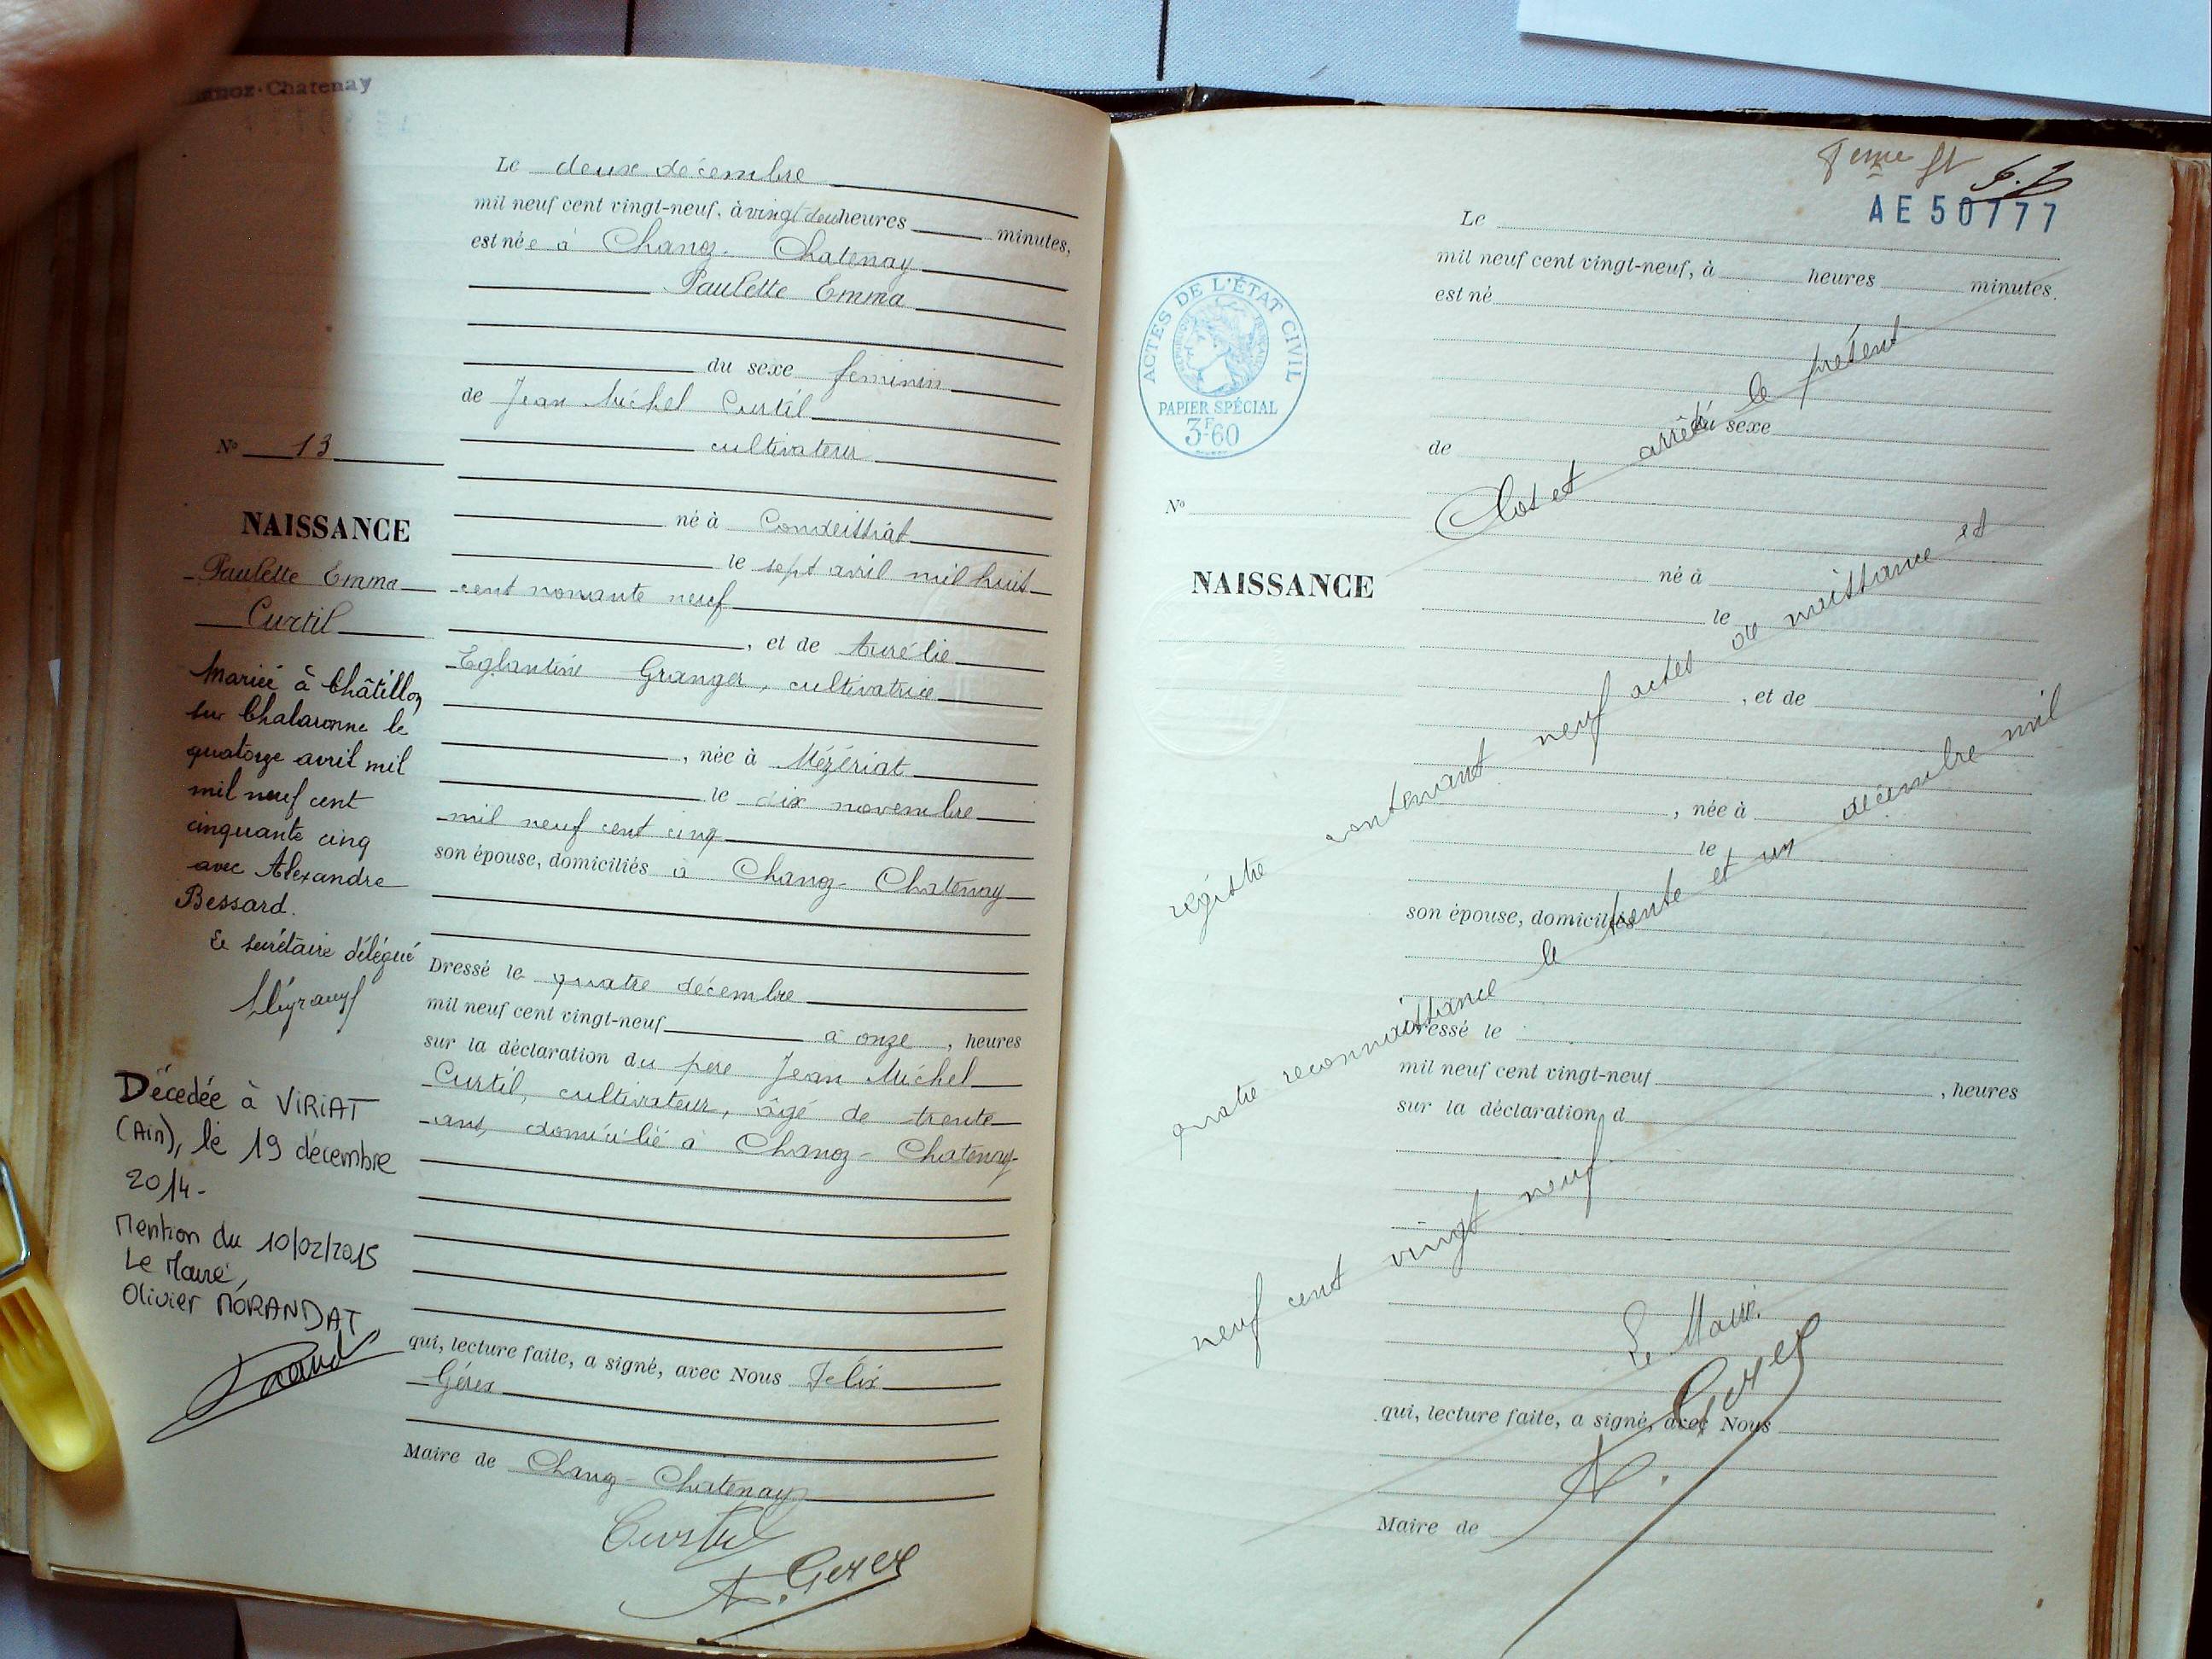 anoz-Chatenay
Le deux décembre
mil neuf cent vingt-neuf, à vingt deux heures minutes,
est née à Chanoz-Chatenay
Paulette Emma
du sexe feminin
de Jean Michel Curtil
cultivateur
né à Condeissiat
le sept avril mil huit
cent nonante neuf
, et de Aurélie
Eglantine Granger, cultivatrice
, née à Mézériat
le dix novembre
mil neuf cent cinq
son épouse, domiciliés à Chanoz-Chatenay
Dressé le quatre décembre
mil neuf cent vingt-neuf à onze, heures
sur la déclaration du père Jean Michel
Curtil, cultivateur, âgé de trente
ans, domicilié à Chanoz-Chatenay
qui, lecture faite, a signé, avec Nous Félix
Gérex
Maire de Chanoz-Chatenay
Curtil
Gerex
No 13
NAISSANCE
Paulette Emma
Curtil
Mariée à Châtillon
sur Chalaronne le
quatorze avril mil
mil neuf cent
cinquante cinq
avec Alexandre
Bessard.
Le secrétaire délégué
Décédée à VIRIAT
(Ain), le 19 décembre
2014-
Mention du 10/02/2015
Le Maire,
Olivier MORANDAT
AE 50777
ACTES DE L'ÉTAT CIVIL
PAPIER SPÉCIAL
3F60
Le
mil neuf cent vingt-neuf, à heures minutes.
est né
du sexe
de
No
NAISSANCE
né à
le
, et de
, née à
le
son épouse, domiciliés
Dressé le
mil neuf cent vingt-neuf , heures
sur la déclaration d
qui, lecture faite, a signé, avec Nous
Maire de
Clos et arrêté le présent
registre contenant neuf actes de naissance et
quatre reconnaissance le trente et un décembre mil
neuf cent vingt neuf
Le Maire
Gerex